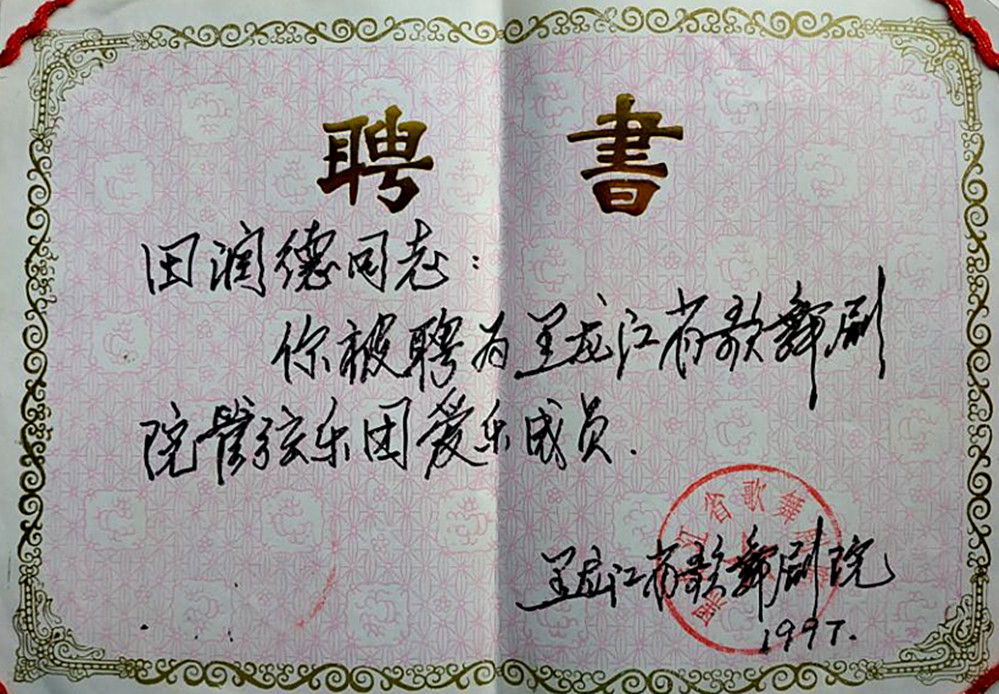 聘書
田润德同志：
你被聘为黑龙江省歌舞剧
院管弦乐团爱乐成员.
江省歌舞
黑龙江省歌舞剧院
1997.